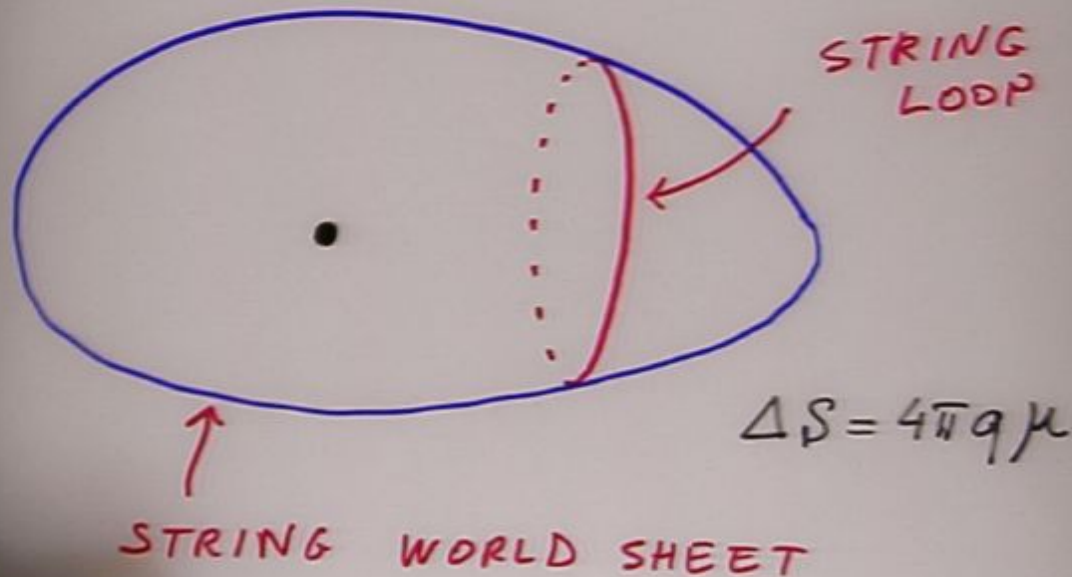 STRING
LOOP
ΔS = 4πqμ
STRING WORLD SHEET